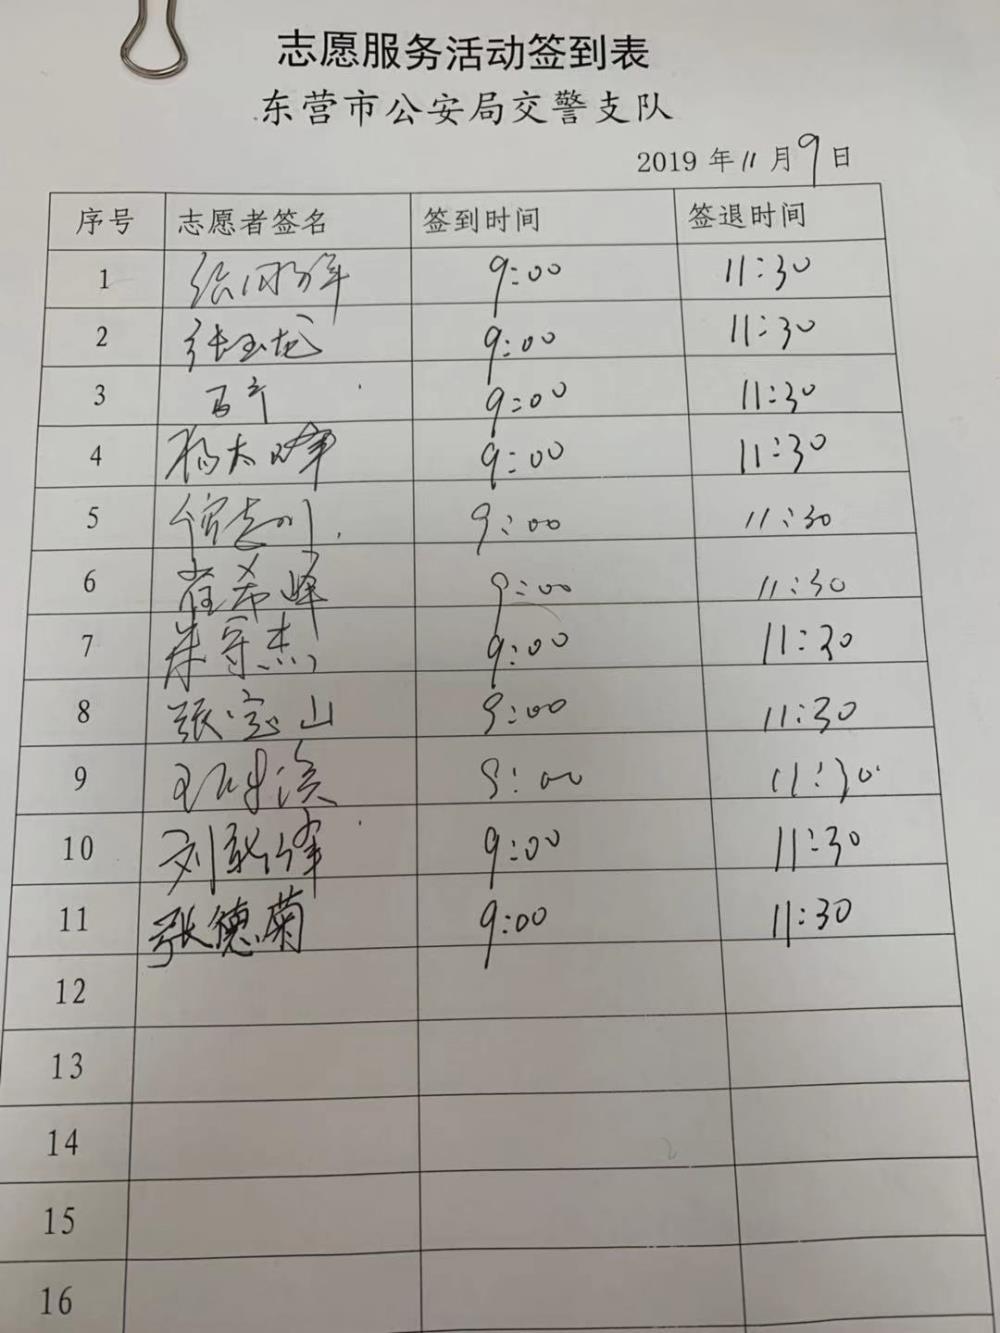 志愿服务活动签到表
东营市公安局交警支队
2019 年 11 月 9 日
序号 志愿者签名 签到时间 签退时间
1 9:00 11:30
2 张玉龙 9:00 11:30
3 9:00 11:30
4 杨太峰 9:00 11:30
5 9:00 11:30
6 崔希峰 9:00 11:30
7 朱守杰 9:00 11:30
8 张宝山 9:00 11:30
9 9:00 11:30
10 刘新峰 9:00 11:30
11 张德菊 9:00 11:30
12
13
14
15
16